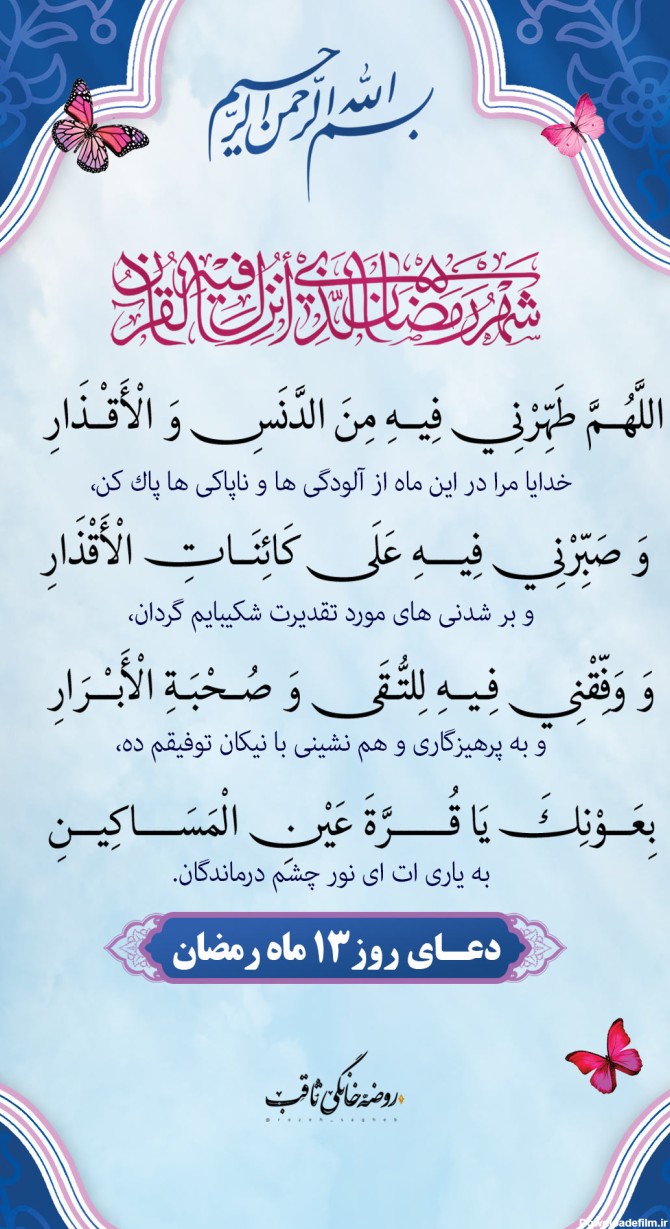 بسم الله الرحمن الرحیم
شهر رمضان الذي أنزل فيه القرآن
اللَّهُمَّ طَهِّرْنِي فِيهِ مِنَ الدَّنَسِ وَ الْأَقْذَارِ
خدایا مرا در این ماه از آلودگی ها و ناپاکی ها پاك کن،
وَ صَبِّرْنِي فِيهِ عَلَى كَائِنَاتِ الْأَقْذَارِ
و بر شدنی های مورد تقدیرت شکیبایم گردان،
وَ وَفِّقْنِي فِيهِ لِلتُّقَى وَ صُحْبَةِ الْأَبْرَارِ
و به پرهیزگاری و هم نشینی با نیکان توفیقم ده،
بِعَوْنِكَ يَا قُرَّةَ عَيْنِ الْمَسَاكِينِ
به یاری ات ای نور چشم درماندگان.
دعای روز ۱۳ ماه رمضان
روضه خانگی ثاقب
@rozeh_sagheb
Downloadefilm.ir